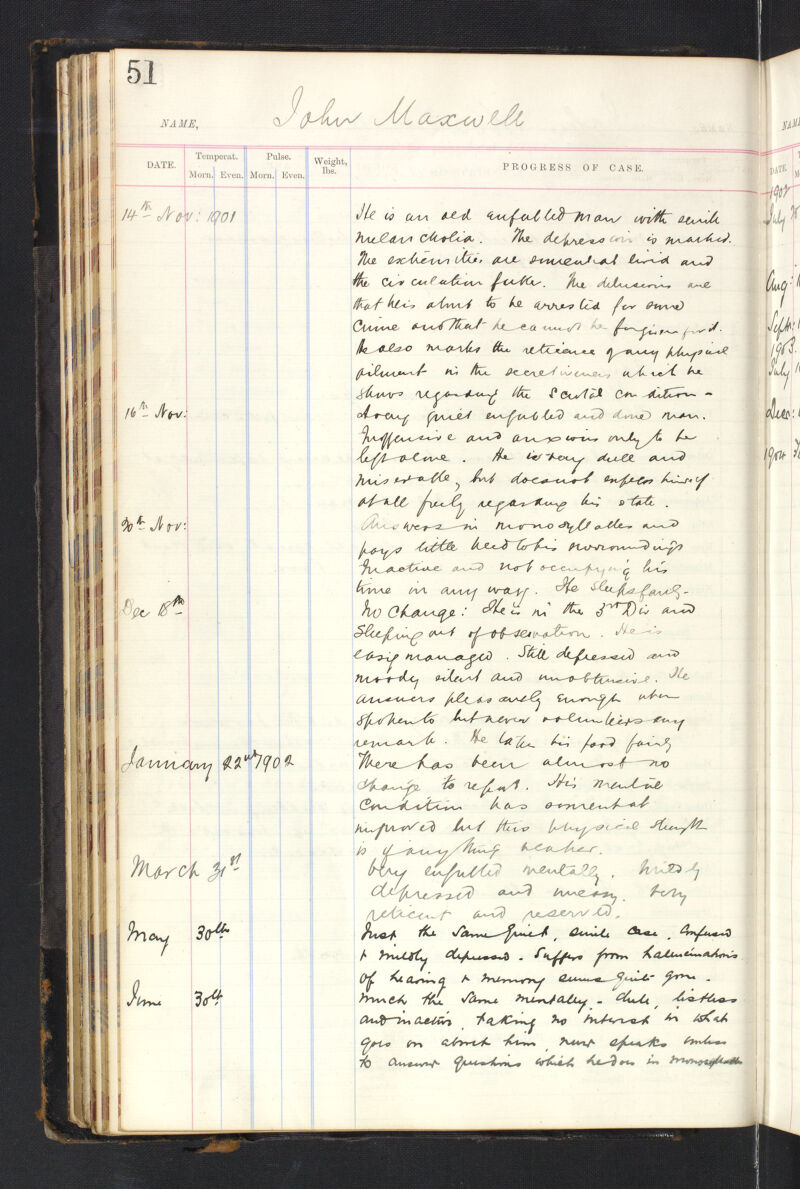 51
NAME, John Maxwell
DATE. Temperat. Pulse. Weight, lbs. PROGRESS OF CASE.
Morn. Even. Morn. Even.
14th Nov: 1901 He is an old enfeebled man with senile
melancholia. The depression is marked.
The extremities are somewhat livid and
the circulation feeble. The delusions are
that he is about to be arrested for some
crime and that he cannot be forgiven for it.
He also marks the reticence of any physical
ailment in the secretiveness which he
shows regarding the Scrotal condition -
16th Nov: A very quiet enfeebled and done man.
Inoffensive and anxious only to be
left alone. He is very dull and
miserable, but does not express himself
at all freely regarding his state.
30th Nov: Answers in monosyllables and
pays little heed to his surroundings
Inactive and not occupying his
time in any way. He sleeps fairly -
Dec 18th No change: He is in the 3rd Div and
sleeping out of observation. He is
easily managed. Still depressed and
moody silent and unobtrusive. He
answers pleasantly enough when
spoken to but never volunteers any
remark. He takes his food fairly
January 22nd 1902 There has been almost no
change to report. His mental
condition has somewhat
improved but his physical strength
is if anything weaker.
March 31st Very enfeebled mentally. Mildly
depressed and uneasy. Very
reticent and reserved.
May 30th Just the same quiet, senile case. Confused
& mildly depressed. Suffers from hallucinations
of hearing & memory seems quite gone.
June 30th Much the same mentally - dull, listless
and inactive, taking no interest in what
goes on about him, never speaks unless
to answer questions which he does in monosyllables
NAM
DATE M
1902
July
Aug:
Septr:
1903.
July
Decr:
1904